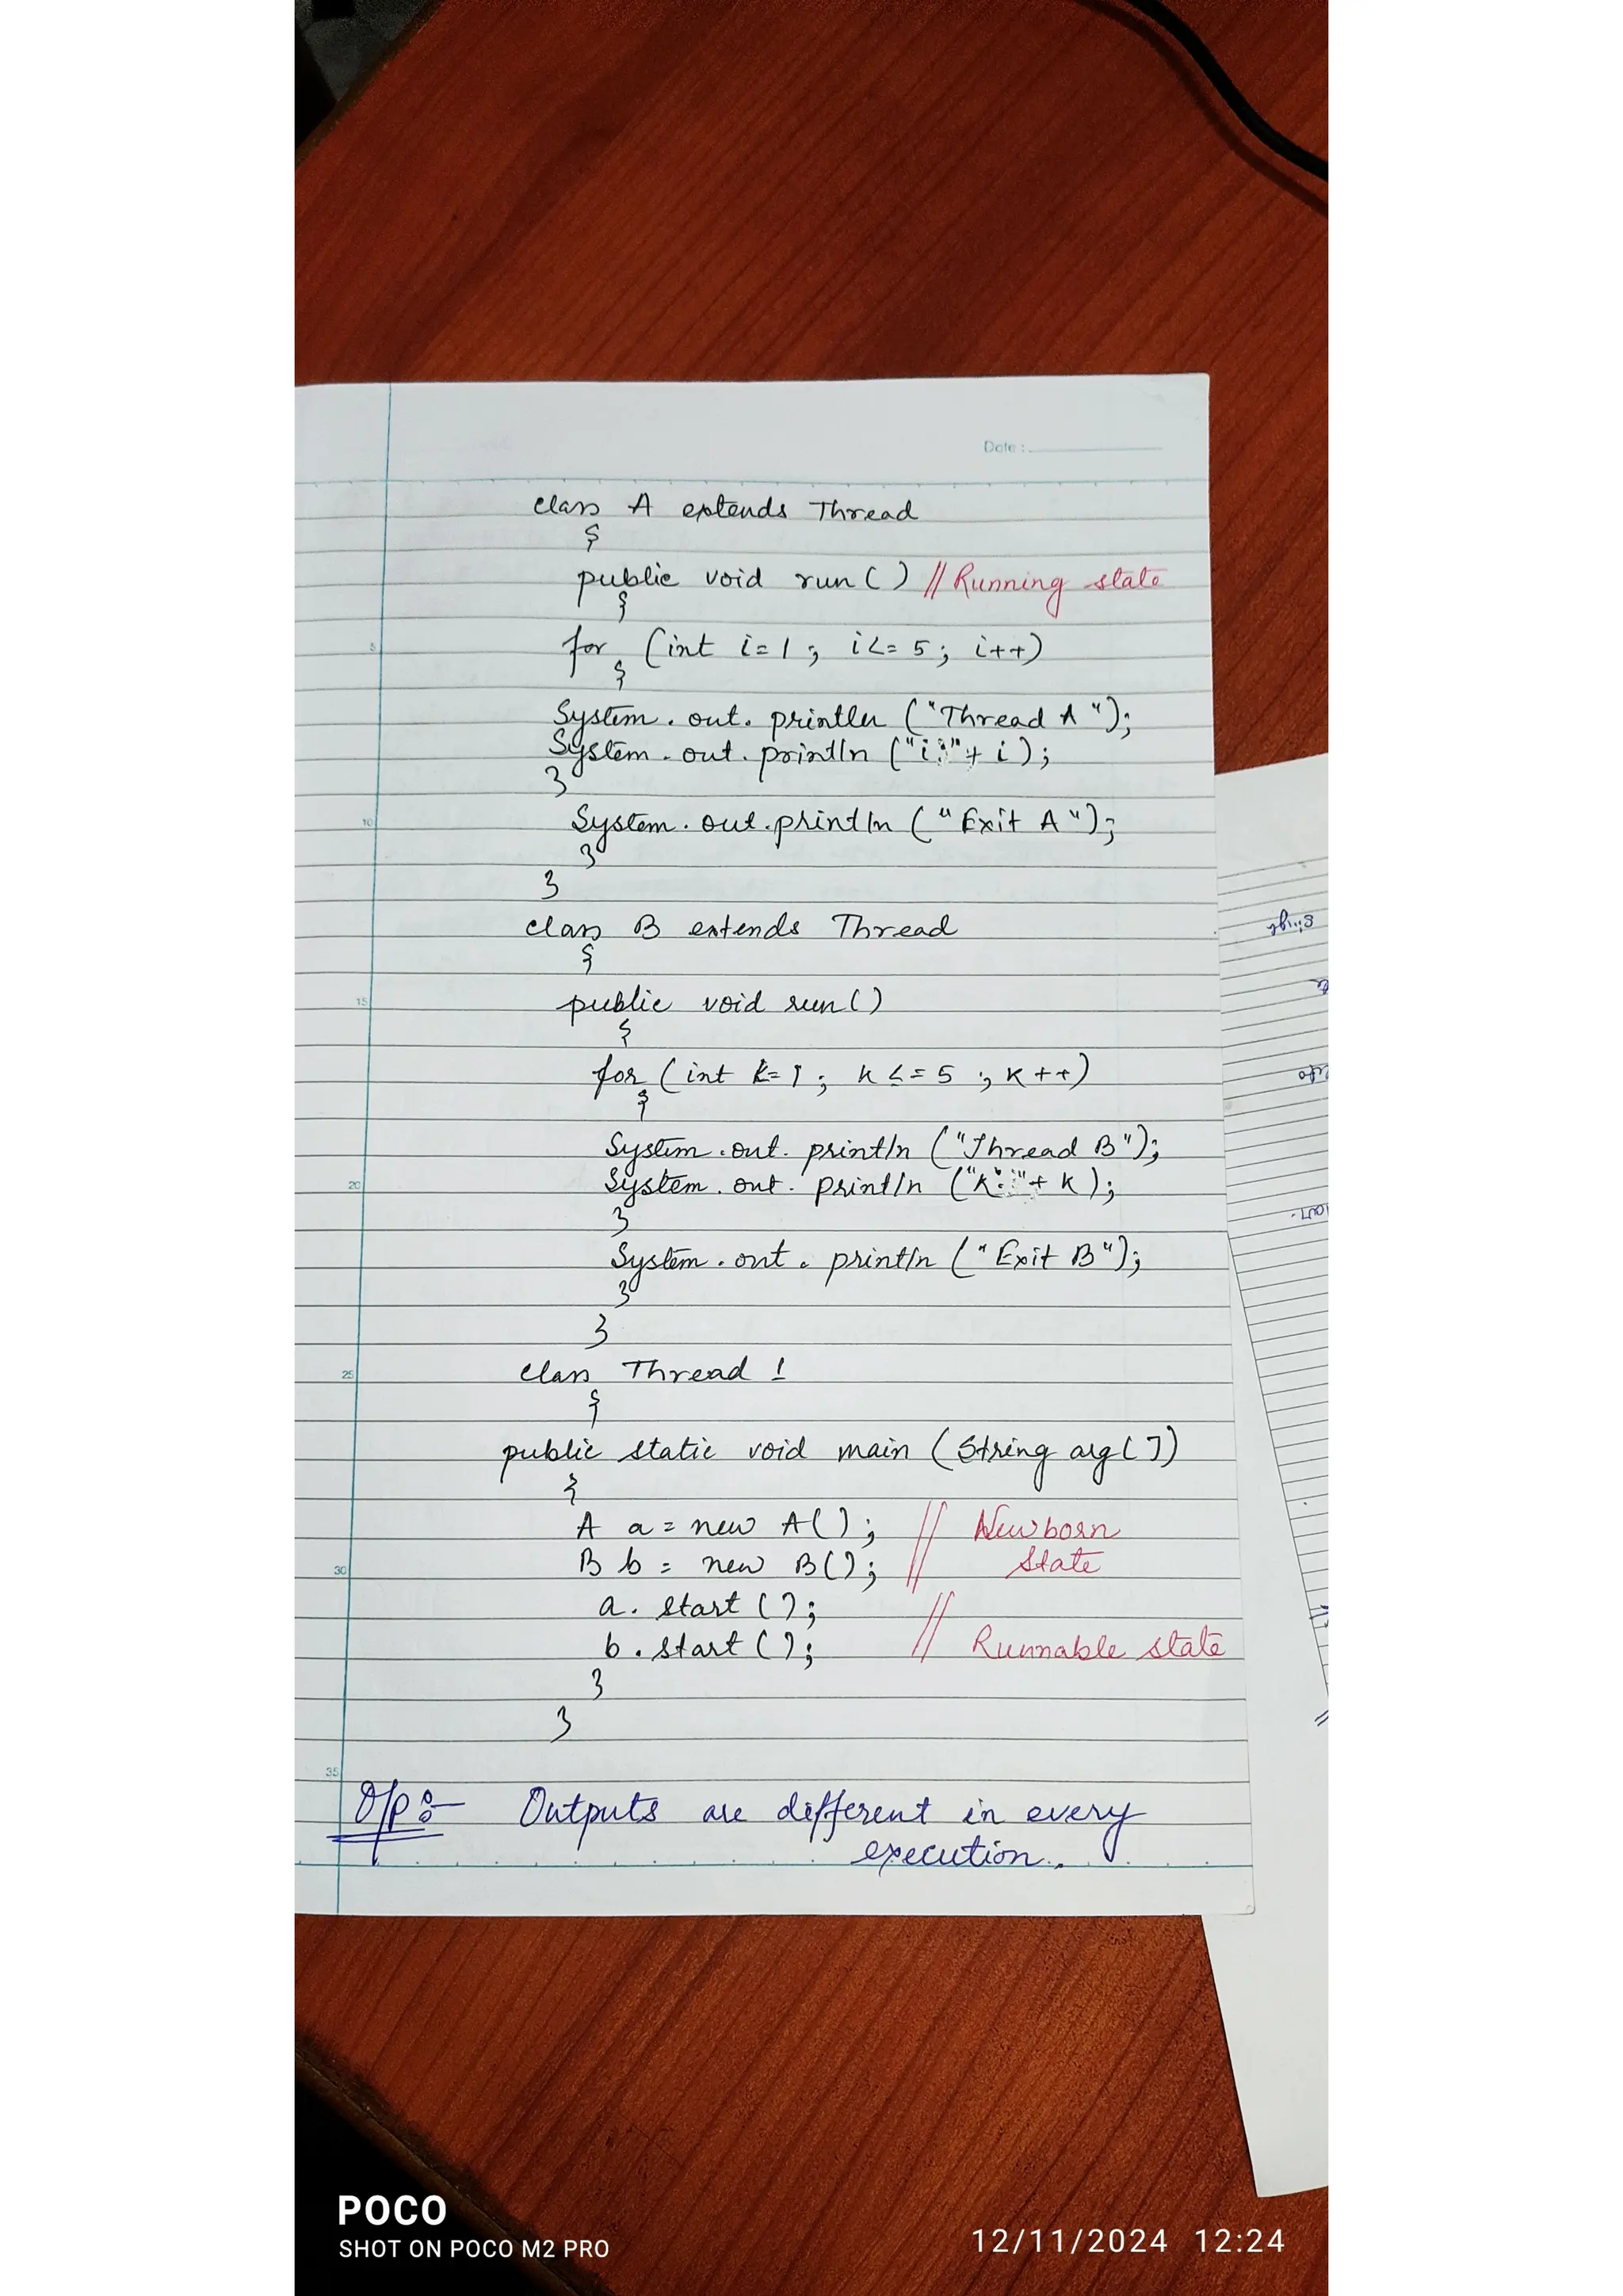 Date :
class A extends Thread
{
public void run() // Running state
5
for (int i=1; i<=5; i++)
{
System.out.println ("Thread A");
System.out.println ("i:"+ i);
}
10
System.out.println ("Exit A");
}
}
class B extends Thread
{
15
public void run()
{
for (int k=1; k<=5; k++)
{
System.out.println ("Thread B");
20
System.out.println ("k:"+ k);
}
System.out.println ("Exit B");
}
}
25
class Thread 1
{
public static void main (String arg[])
{
A a = new A(); // Newborn
30
B b = new B(); // State
a.start();
b.start(); // Runnable state
}
}
35
O/p:- Outputs are different in every
execution.
POCO
SHOT ON POCO M2 PRO
12/11/2024 12:24